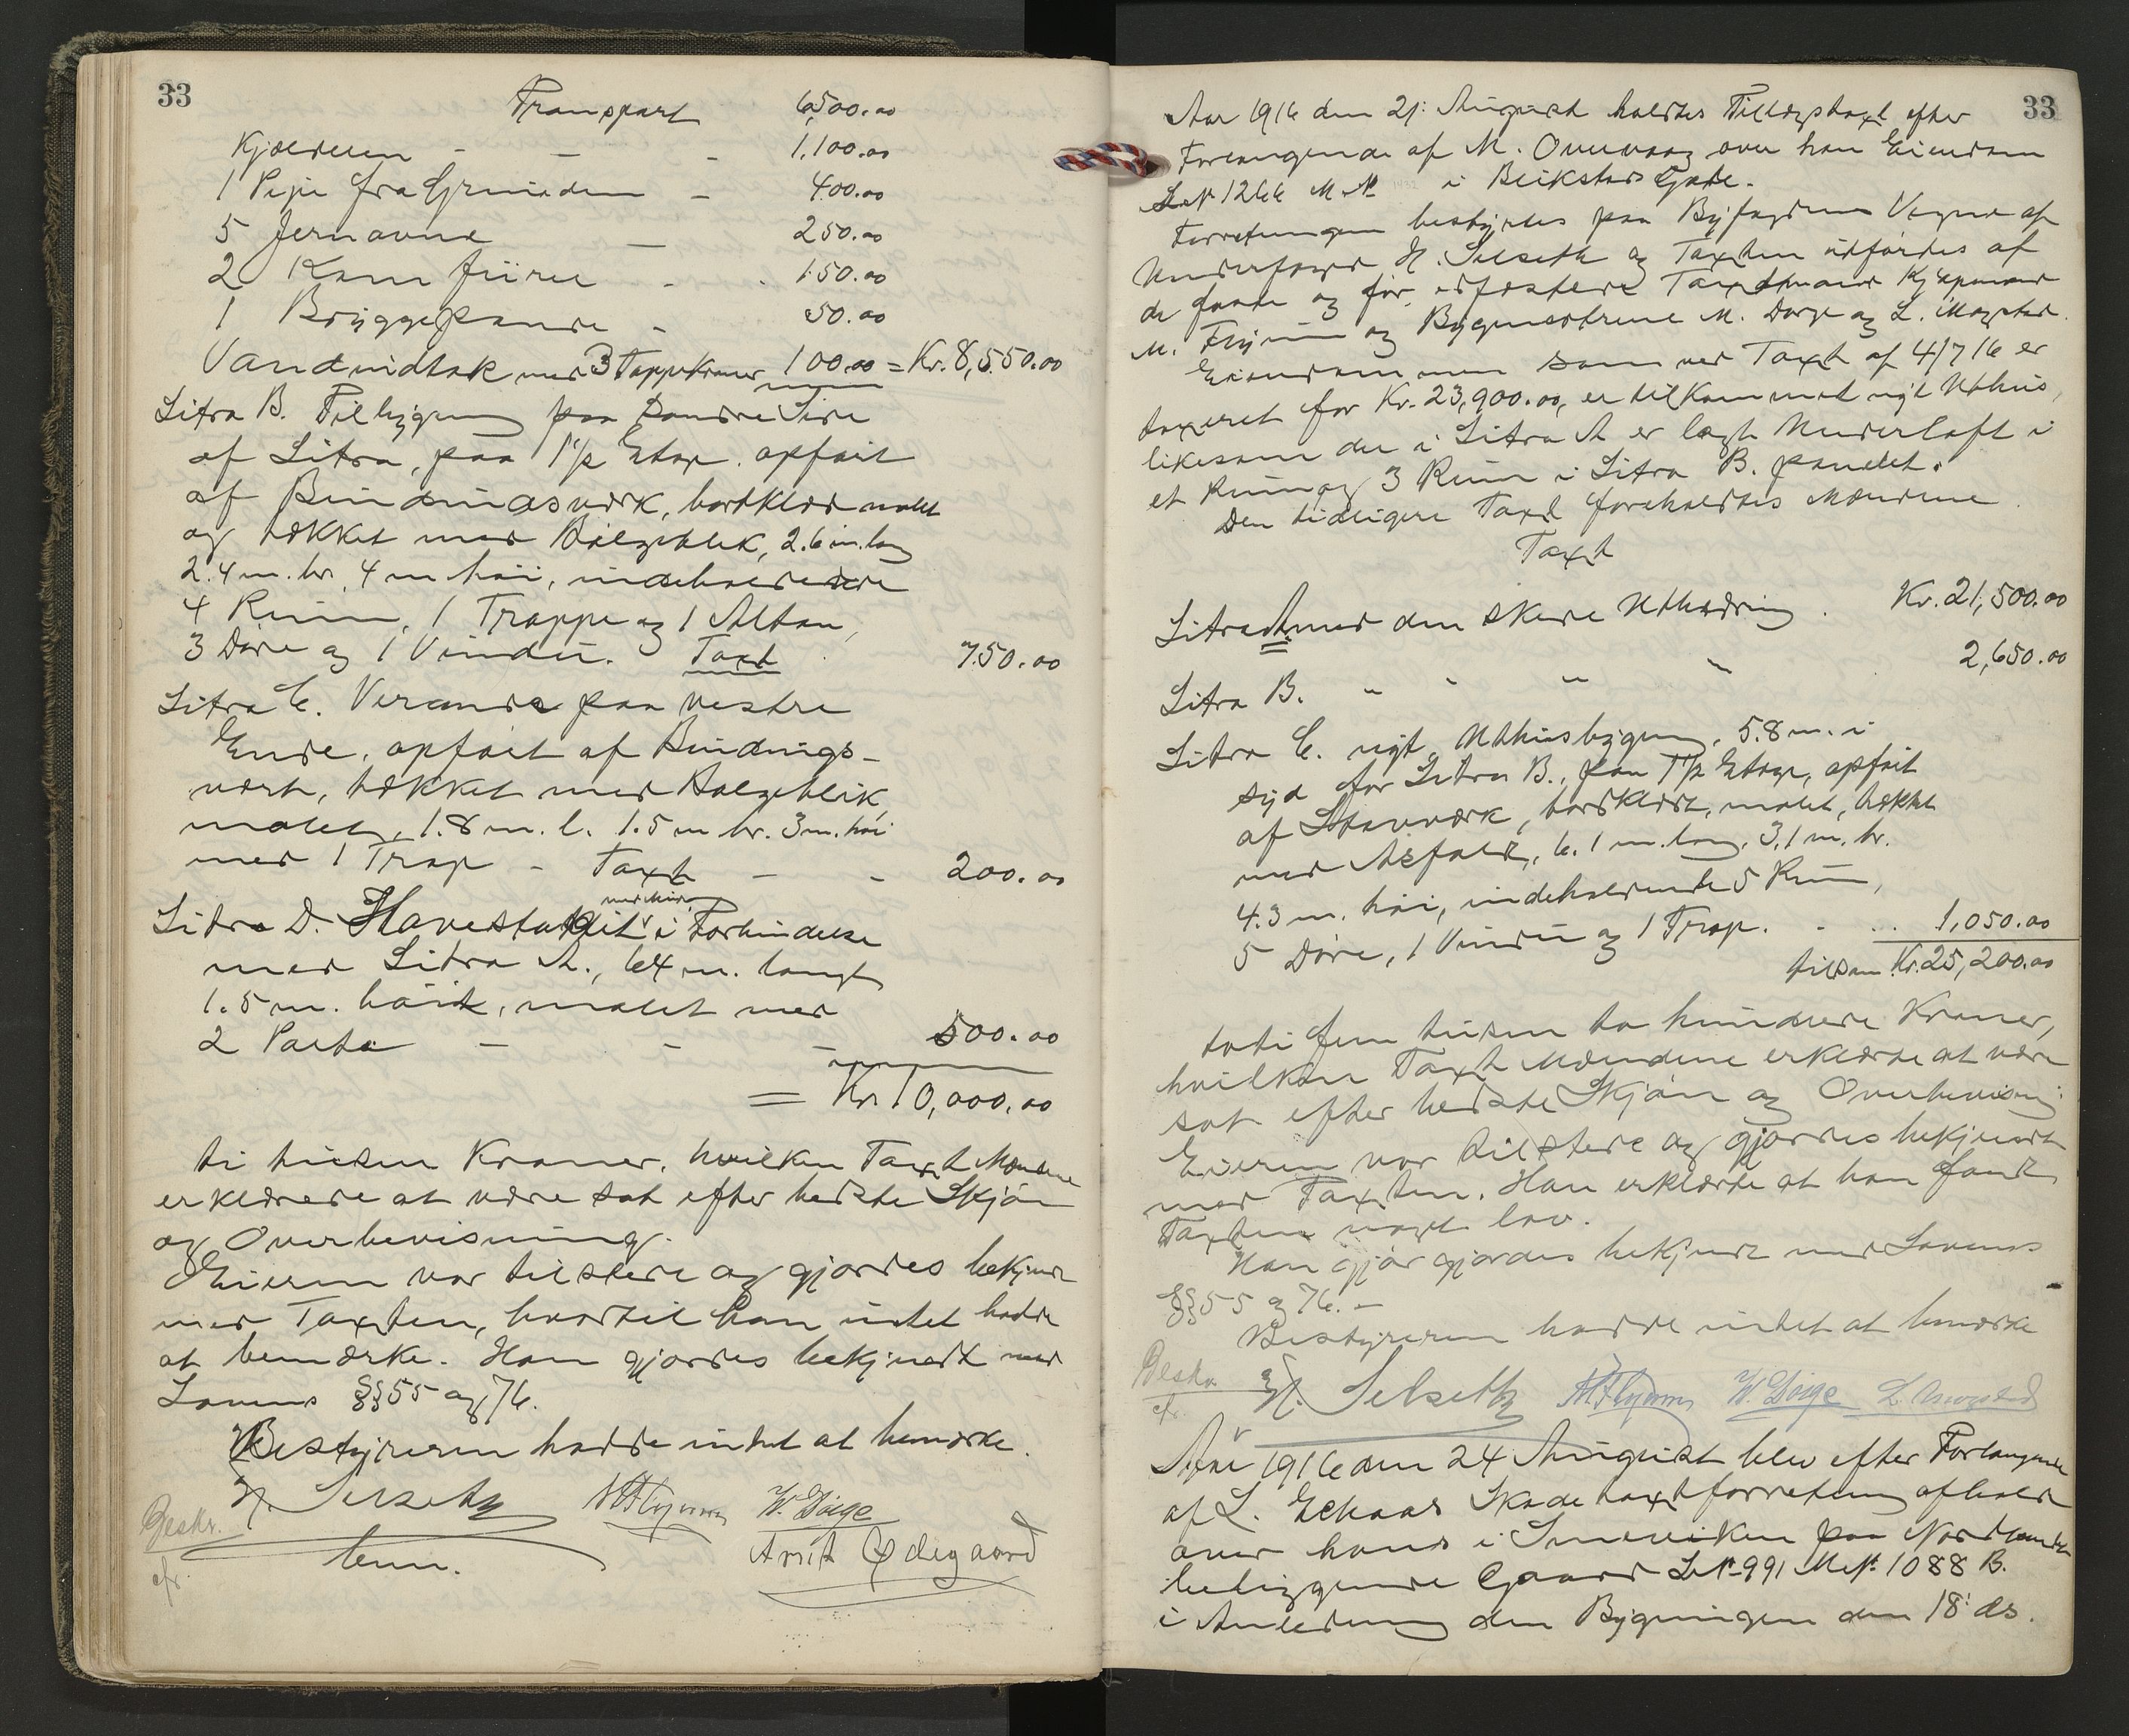 33
Transport 6,500.00
Kjælderen - - - 1,100.00
1 Pipe fra Grunden - 400.00
5 Jernovne - 250.00
2 Komfürer - . 150.00
1 Bryggepande - 50.00
Vandindtak med 3 Tappekraner 100.00 = Kr. 8,550.00
Litra B. Tilbygning paa søndre Side
af Litra, paa 1½ Etage opført
af Bindingsverk, bordklædt malet
og tækket med Bølgeblik, 2.6 m. lang
2.4 m. br. 4 m høi, indeholdende
4 Rum, 1 Trappe og 1 Altan,
3 Døre og 1 Vindu. Taxt 750.00
Litra C. Veranda paa vestre
Ende, opført af Bindings-
værk, tækket med Bølgeblik,
malet, 1.8 m. l. 1.5 m br. 3 m. høi
med 1 Trap - Taxt - - 200.00
Litra D. Havestakit i Forbindelse
med Litra A., 64 m. langt
1.5 m. høit, malet med
2 Porte - - - 500.00
= Kr. 10,000.00
ti tusen Kroner, hvilken Taxt Mændene
erklærede at være sat efter bedste Skjøn
og Overbevisning.
Eieren var tilstede og gjordes bekjendt
med Taxten, hvortil han intet hadde
at bemærke. Han gjordes bekjendt med
Lovens §§ 55 og 76.
Bestyreren hadde intet at bemærke.
H. Selseth M Flynn W. Döige
Beskr. Arnt Ødegaard
33
Aar 1916 den 21: August holdtes Tillægstaxt efter
Forlangende af M. Overvaag over han Eiendom
LN 1266 M.N. i Beikstad Gade.
Forretningen bestyrtes paa Byfogdens Vegne af
Underfoged H. Selseth og Taxten utførtes af
de faste og før edfæstede Taxtmænd Kjøpmand
M. Flynn og Bygmestrene M. Döige og L. Mogstad.
Eiendommen som ved Taxt af 4/7 16 er
taxeret for Kr. 23,900.00, er tilkommet nyt Uthus,
likesom der i Litra A er lagt Underloft i
et Rum og 3 Rum i Litra B. panelet.
Den tidligere Taxt foreholdtes Mændene.
Taxt
Litra A. med den skede Utbedring . Kr. 21,500.00
Litra B. " " " " 2,650.00
Litra C. nyt Uthusbygning, 5.8 m. i
syd for Litra B., paa 1½ Etage, opført
af Stavværk, bordklædt, malet, tækket
med Asfalt, 6.1 m. lang, 3.1 m. br.
4.3 m. høi, indeholdende 5 Rum,
5 Døre, 1 Vindu og 1 Trap. . .. 1,050.00
tilsam. Kr. 25,200.00
toti fem tusen to hundrede Kroner,
hvilken Taxt Mændene erklærte at være
sat efter bedste Skjøn og Overbevisning.
Eieren var tilstede og gjordes bekjendt
med Taxten. Han erklærte at han fandt
Taxten noget lav.
Han gjör gjordes bekjendt med Lovens
§§ 55 og 76. -
Bestyreren hadde intet at bemærke
Beskr. H. Selseth M Flynn W. Döige L. Mogstad
Aar 1916 den 24 August blev efter Forlangende
af L. Eckaas Skadetaxtforretning afholdt
over hans i Smevikens paa Nordlandet
beliggende Gaard LN 991 MN. 1088 B.
i Anledning den Bygningen den 18: ds.